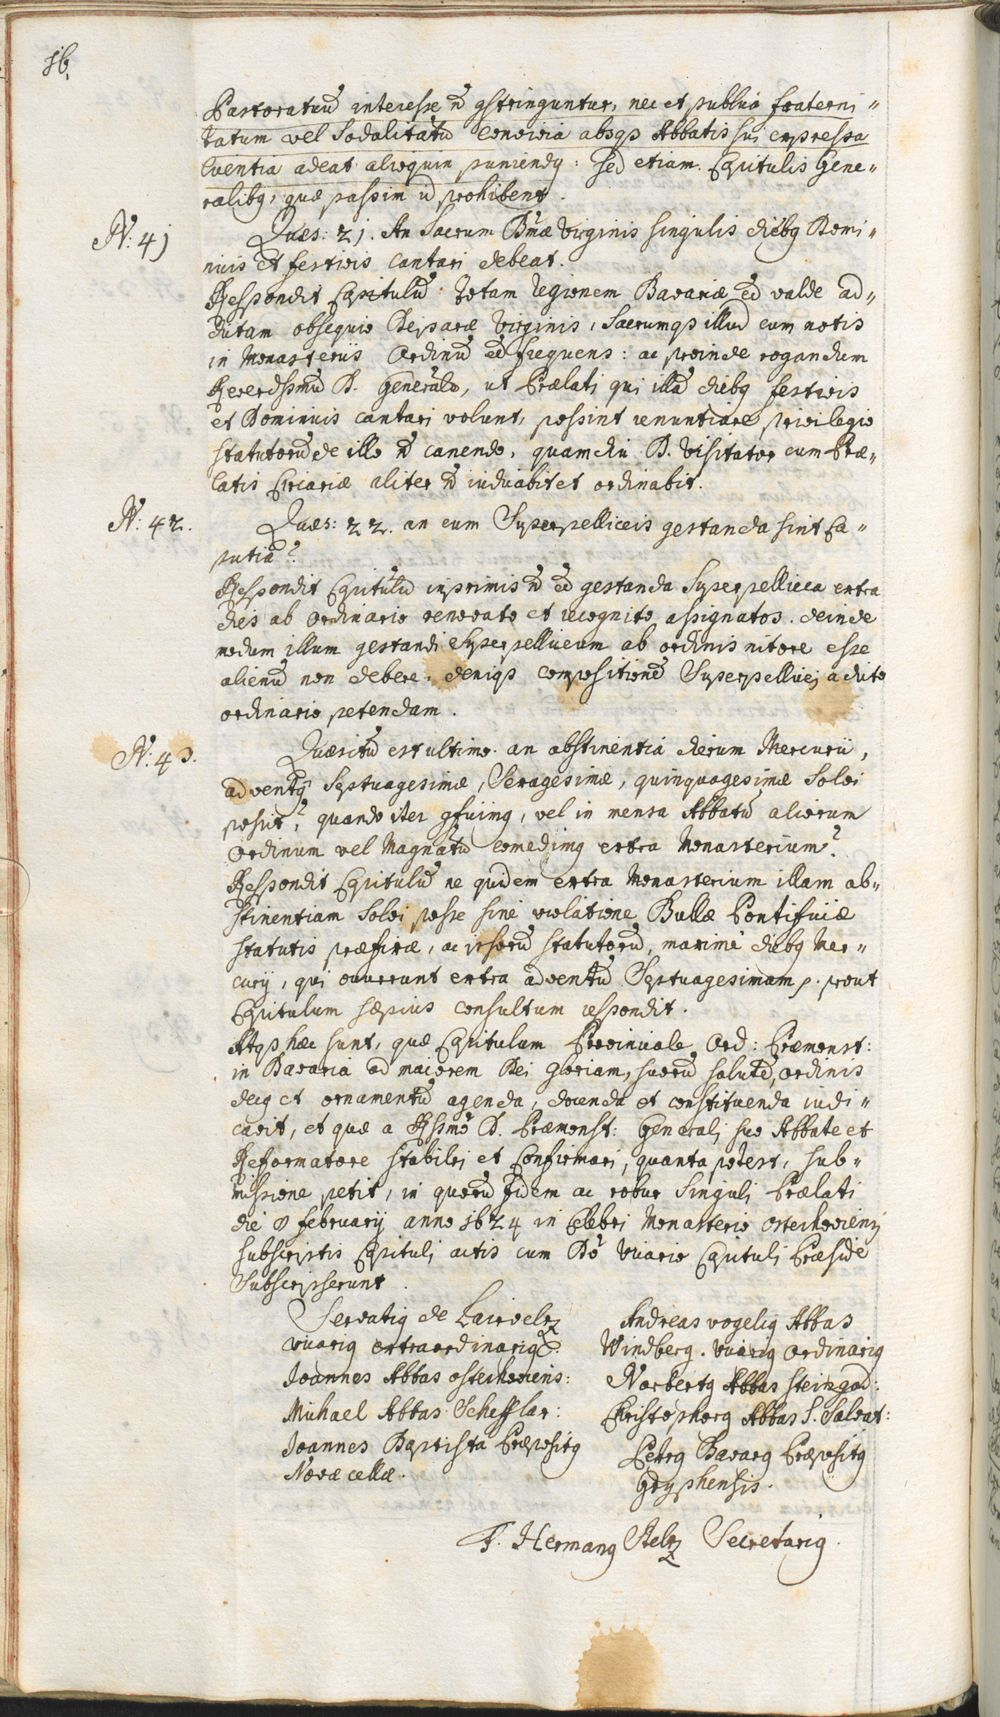 16.
Pastoratuū interesse n̄ gstringuntur, nec et publica fraterni„
tatum vel Sodalitatū convivia absqȝ Abbatis sui expressa
licentia adeat alioquin puniendꝯ: sed etiam Capitulis Gene„
ralibꝯ, quæ passim id prohibent.
N: 41
Quæs: 21. An Sacrum Bmæ Virginis singulis diebꝯ Domi„
nicis et festivis cantari debeat.
Respondit Capitulū totam regionem Bavariæ eē valde ad„
dictam obsequio Deiparæ Virginis, Sacrumqȝ illud cum notis
in Monasteriis Ordinū eē frequens: ac proinde rogandum
Reverdssmū D. Generalē, ut Prælati qui illā diebꝯ festivis
et Dominicis cantari volunt, possint renuntiare privilegio
statutorū de illo n̄ canendo, quamdiu D. Visitator cum Præ„
latis Circariæ aliter n̄ iudicabit et ordinabit.
N: 42.
Quæs: 22. an cum Superpelliceis gestanda sint Ca„
putia?
Respondit Capitulū inprimis n̄ eē gestanda Superpellicea extra
dies ab Ordinario renovato et recognito assignatos. deinde
modum illum gestandi Superpelliceum ab ordinis nitore esse
alienū non debere. deniqȝ compositionē Superpellicej a dicto
ordinario petendam.
N: 43.
Quæsitū est ultimo. an abstinentia dierum Mercurii,
adventꝯ Septuagesimæ, Sexagesimæ, quinquagesimæ Solvi
possit? quando iter gficimꝯ, vel in mensa Abbatū aliorum
Ordinum vel Magnatū comedimꝯ extra Monasterium?
Respondit Capitulū ne quidem extra Monasterium illam ab„
stinentiam Solvi posse sine violatione Bullæ Pontificiæ
statutis præfixæ, ac ipsorū statutorū, maximè diebꝯ Mer„
curij, qui occurrunt extra adventū Septuagesimam p. prout
Capitulum sæpius consultum respondit.
Atqȝ hæc sunt, quæ Capitulum Provinciale Ord: Præmonst:
in Bavaria ad maiorem Dei Gloriam, suorū salutē, ordinis
decꝯ et ornamentū agenda, docenda et constituenda iudi„
cavit, et quæ a Rssmo D. Præmonst: Generali suo Abbate et
Reformatore stabiliri et Confirmari, quanta potest, sub„
missione petit, in quorū fidem ac robur Singuli Prælati
die 8 februarij anno 1624 in Celebri Monasterio Osterhoviensj
subscriptis Capituli actis cum Dō Vicario Capituli Præside
Subscripserunt.
Servatiꝯ de Lairvelz
Vicariꝯ extraordinariꝯ.
Joannes Abbas Osterhoviens:
Michael Abbas Schefflar:
Joannes Baptista Præpositꝯ
Novæ cellæ.
Andreas vogeliꝯ Abbas
Windberg. Vicariꝯ Ordinariꝯ
Norbertꝯ Abbas Steingad:
Christophorꝯ Abbas S. Salvat:
Petrꝯ Bavarꝯ Præpositꝯ
Gryphensis.
F. Hermanꝯ Stelz Secretariꝯ.